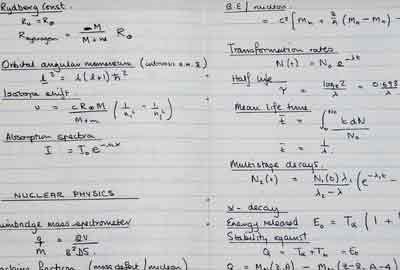 Rydberg Const.
R∞ = R∞
R Hydrogen = M / M+m R∞
Orbital angular momentum
l² = l(l+1)ħ²
Isotope shift.
υ = cR∞M / M+m (1/n₁² - 1/n₂²)
Absorption spectra
I = I₀e
NUCLEAR PHYSICS
mass spectrometer
q/M = / B²DS
fraction (mass defect / nucleon)
B.E / nucleon
= c² [Mn + Z/A (MH - Mn) -
Transformation rates
N(t) = N₀ e^-λt
Half life
τ = loge2 / λ = 0.693
Mean life time
t̄ = ∫ t dN / N₀
t̄ = 1/λ
Multistage decays.
N₂(t) = N₁(0) λ₁ / λ₂ - λ (e^-λ₁t -
α - decay
Energy released E₀ = Tα (1 +
Stability against
Q = Tα + Tb = E₀
Q = (Z, A) - (Z-2, A-4)